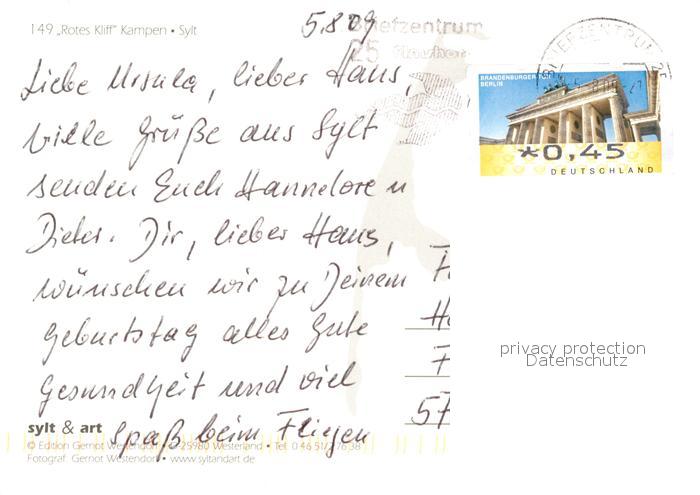 149 „Rotes Kliff“ Kampen • Sylt
5.8.09
Briefzentrum
25
BRIEFZENTRUM 25
Liebe Ursula, lieber Hans,
viele Grüße aus Sylt
senden Euch Hannelore u
Dieter. Dir, lieber Hans,
wünschen wir zu Deinem
Geburtstag alles Gute
Gesundheit und viel
Spaß beim Fliegen
BRANDENBURGER TOR
BERLIN
*0,45
DEUTSCHLAND
F
H
F
57
privacy protection
Datenschutz
sylt & art
© Edition Gernot Westendorf • D-25980 Westerland • Tel.
Fotograf: Gernot Westendorf • www.syltandart.de